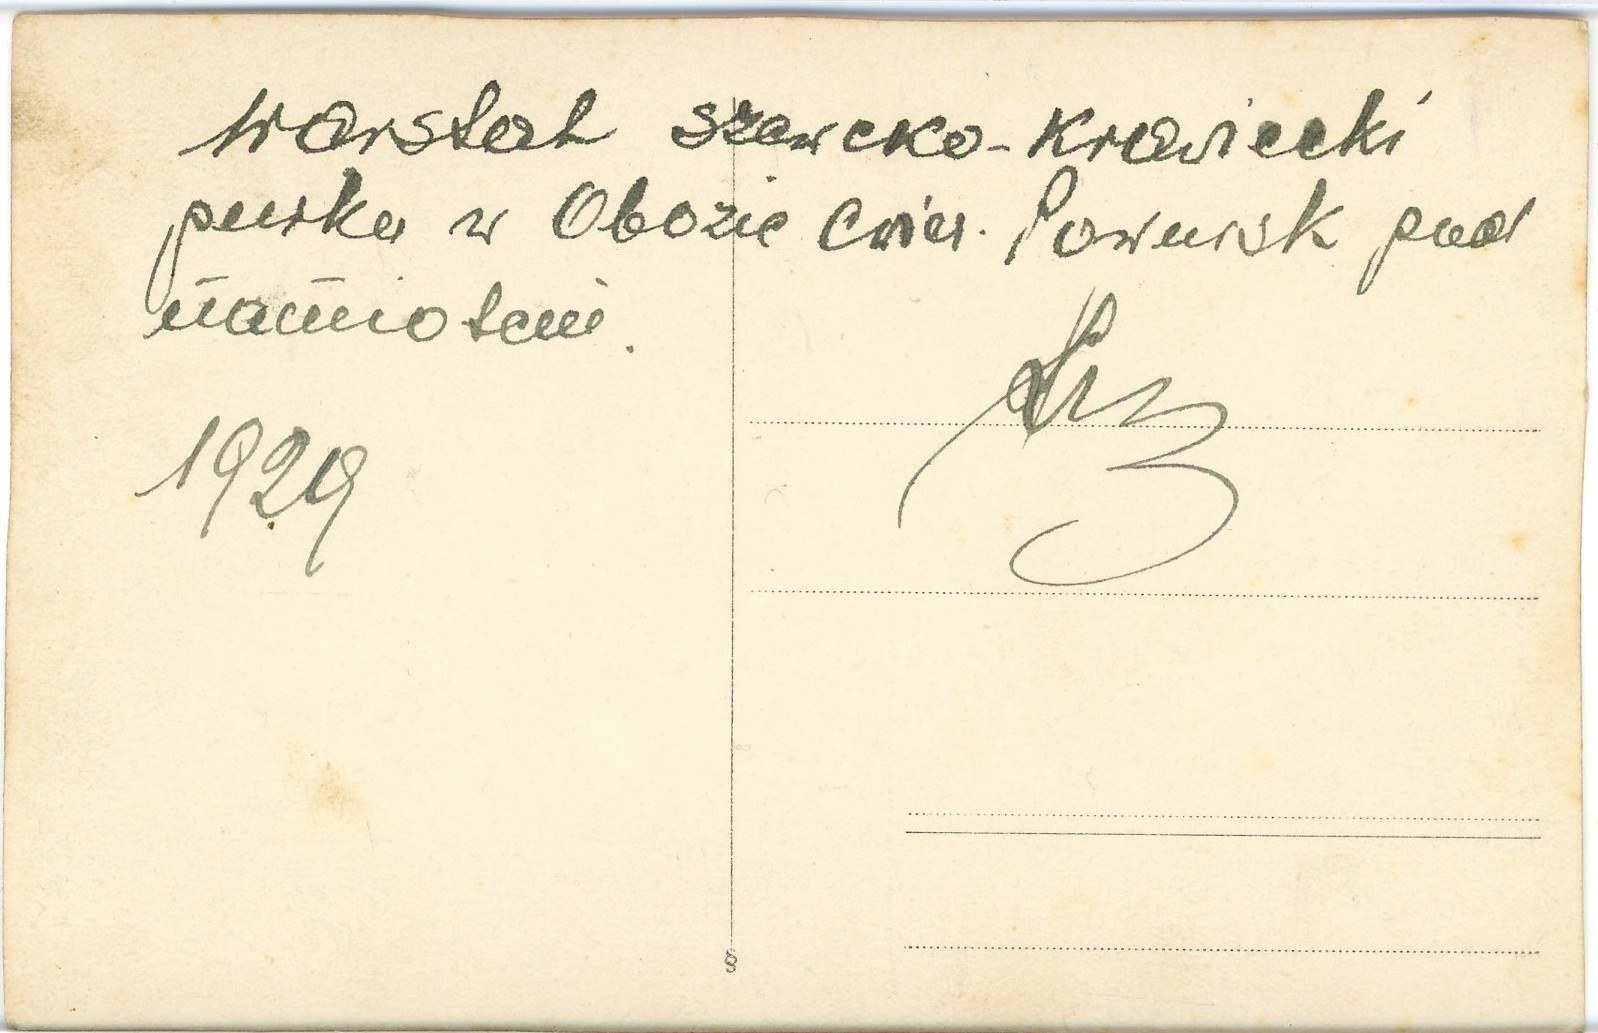 Warstat szewcko-krawiecki
pułku w Obozie Ćwicz. Powursk pod
namiotem.
1929